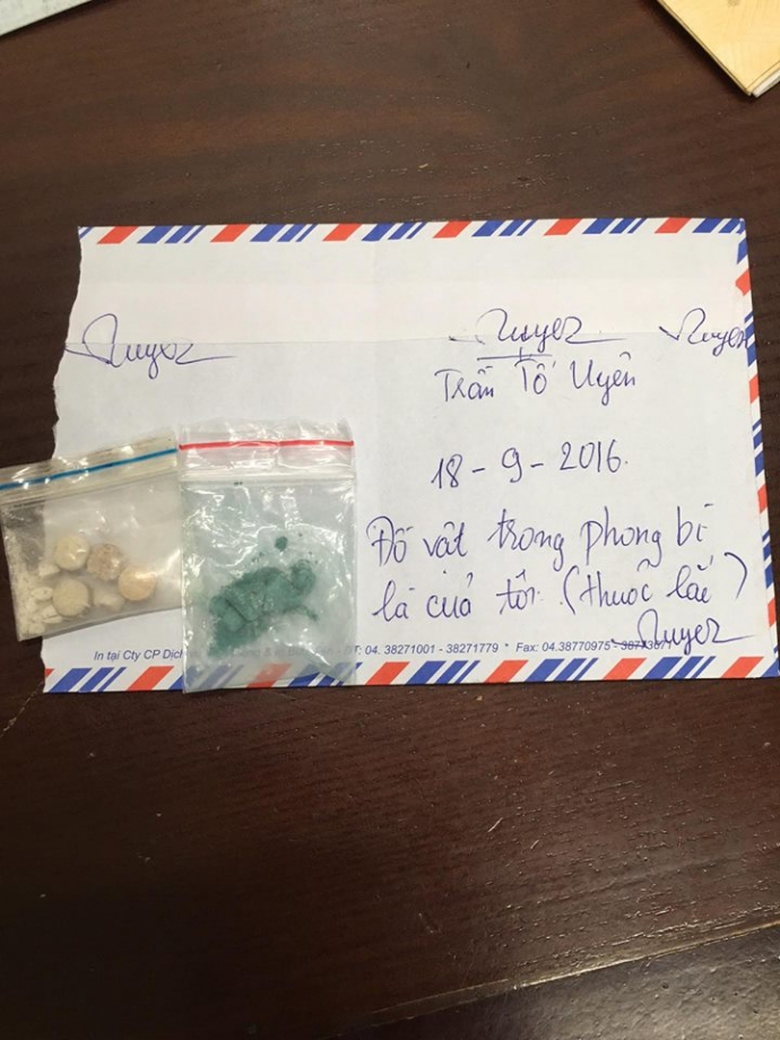 Tuyez Tuyez Tuyen
Trần Tố Uyên
18-9-2016.
Đồ vật trong phong bì
là của tôi (thuốc lắc)
Tuyez
In tại Cty CP Dịch ĐT: 04. 38271001 - 38271779 * Fax: 04.38770975 -